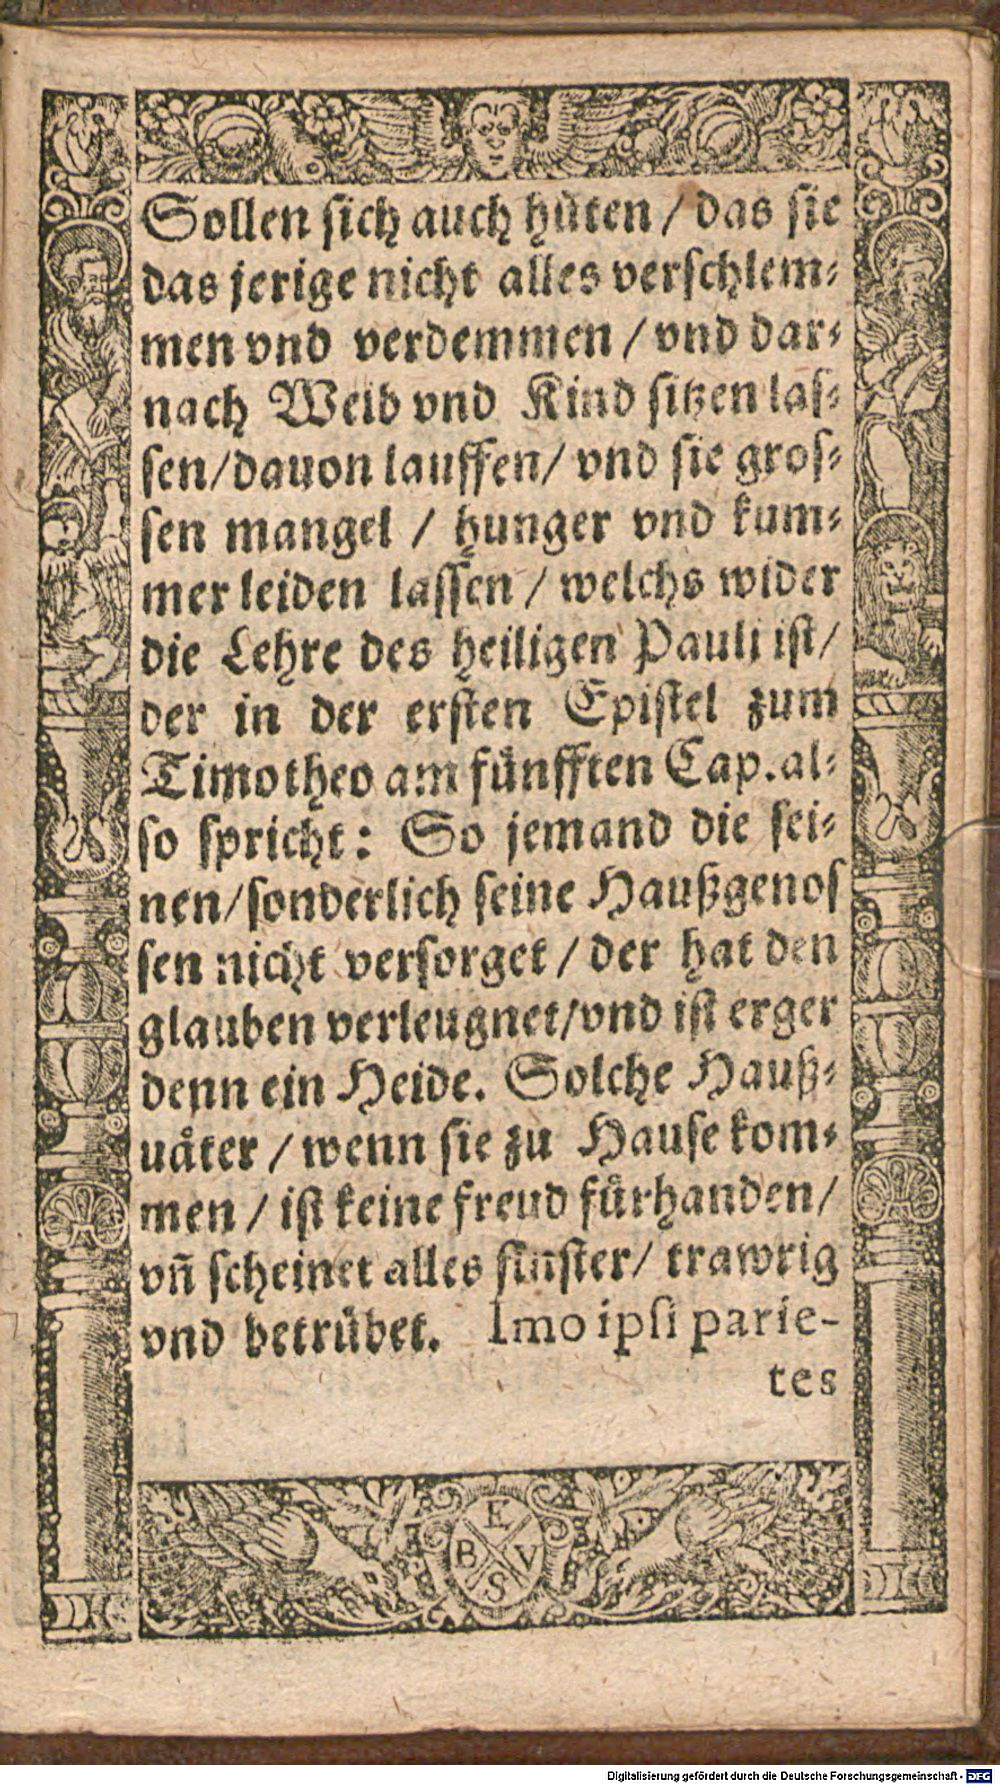 Sollen sich auch hüten / das sie
das jerige nicht alles verschlem⸗
men vnd verdemmen / vnd dar⸗
nach Weib vnd Kind sitzen las⸗
sen/dauon lauffen/ vnd sie gros⸗
sen mangel / hunger vnd kum⸗
mer leiden lassen / welchs wider
die Lehre des heiligen Pauli ist/
der in der ersten Epistel zum
Timotheo am fünfften Cap.al⸗
so spricht: So jemand die sei⸗
nen/sonderlich seine Haußgenos
sen nicht versorget / der hat den
glauben verleugnet/vnd ist erger
denn ein Heide. Solche Hauß⸗
uåter / wenn sie zu Hause kom⸗
men / ist keine freud fürhanden/
vñ scheinet alles finster/ trawrig
vnd betrübet. Imo ipsi parie-
tes
E
B V
S
Digitalisierung gefördert durch die Deutsche Forschungsgemeinschaft - DFG